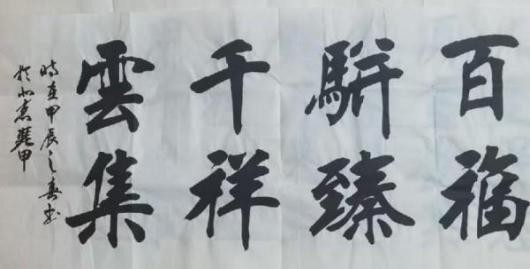 百福
駢臻
千祥
雲集
時在甲辰之春書
於北京龔甲